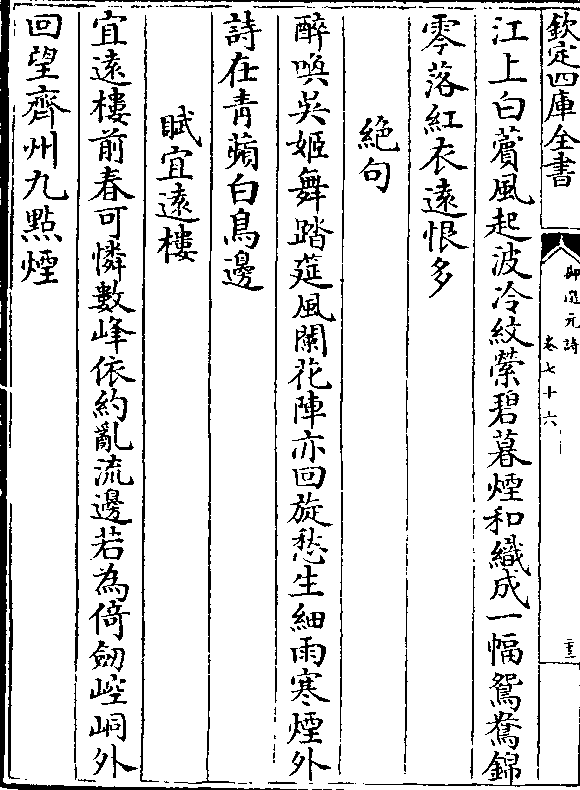 欽定四庫全書
御選元詩
卷七十六
江上白蘋風起波冷紋縈碧暮煙和織成一幅鴛鴦錦
零落紅衣遠恨多
絕句
醉喚吳姬舞踏筵風闌花陣亦回旋愁生細雨寒煙外
詩在青蘋白鳥邊
賦宜遠樓
宜遠樓前春可憐數峰依約亂流邊若為倚劒崆峒外
回望齊州九點煙